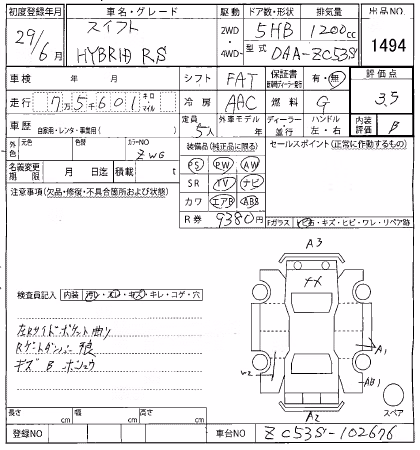 初度登録年月 車名・グレード 駆動 ドア数・形状 排気量 出品NO
29/6月 スイフト HYBRID RS 2WD 4WD 5HB 1200cc 1494
型式 DAA-ZC53S
車検 年 月 シフト FAT 保証書 有・無 評価点
走行 7万5千601 キロ・マイル 冷房 AAC 燃料 G 3.5
車歴 自家用・レンタ・事業用( ) 定員 5人 外車モデル 年 ディーラー 並行 ハンドル 左・右 内装評価 B
外色 元色 色替 カラーNO ZWG 装備品(純正品に限る) セールスポイント(正常に作動するもの)
名義変更期限 月 日迄 積載 t PS PW AW
注意事項(欠品・修復・不具合箇所および状態) SR TV ナビ
カワ エアB ABS
R券 9380円 Fガラス
石・キズ・ヒビ・ワレ・リペア跡
A3
検査員記入 内装 汚レ・スレ・キズ・キレ・コゲ・穴
左Rサイドポケット
Rゲートダンパー
キズ B
A1
W2
AB1
A2
スペア
長さ cm 幅 cm 高さ cm
登録NO 車台NO ZC53S-102676